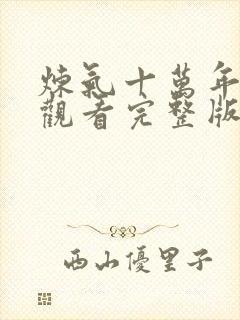 煉氣十萬年
觀看完整版
西山優里子